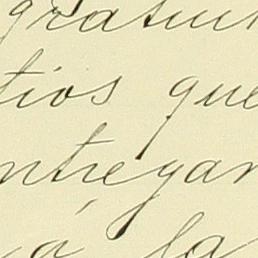 gratui
tios que
ntregar
a la